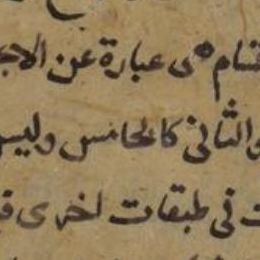 قسام هى عبارة عن الاجـ
ى الثانى كالخامس وليس
ت فى طبقات اخرى فيـ